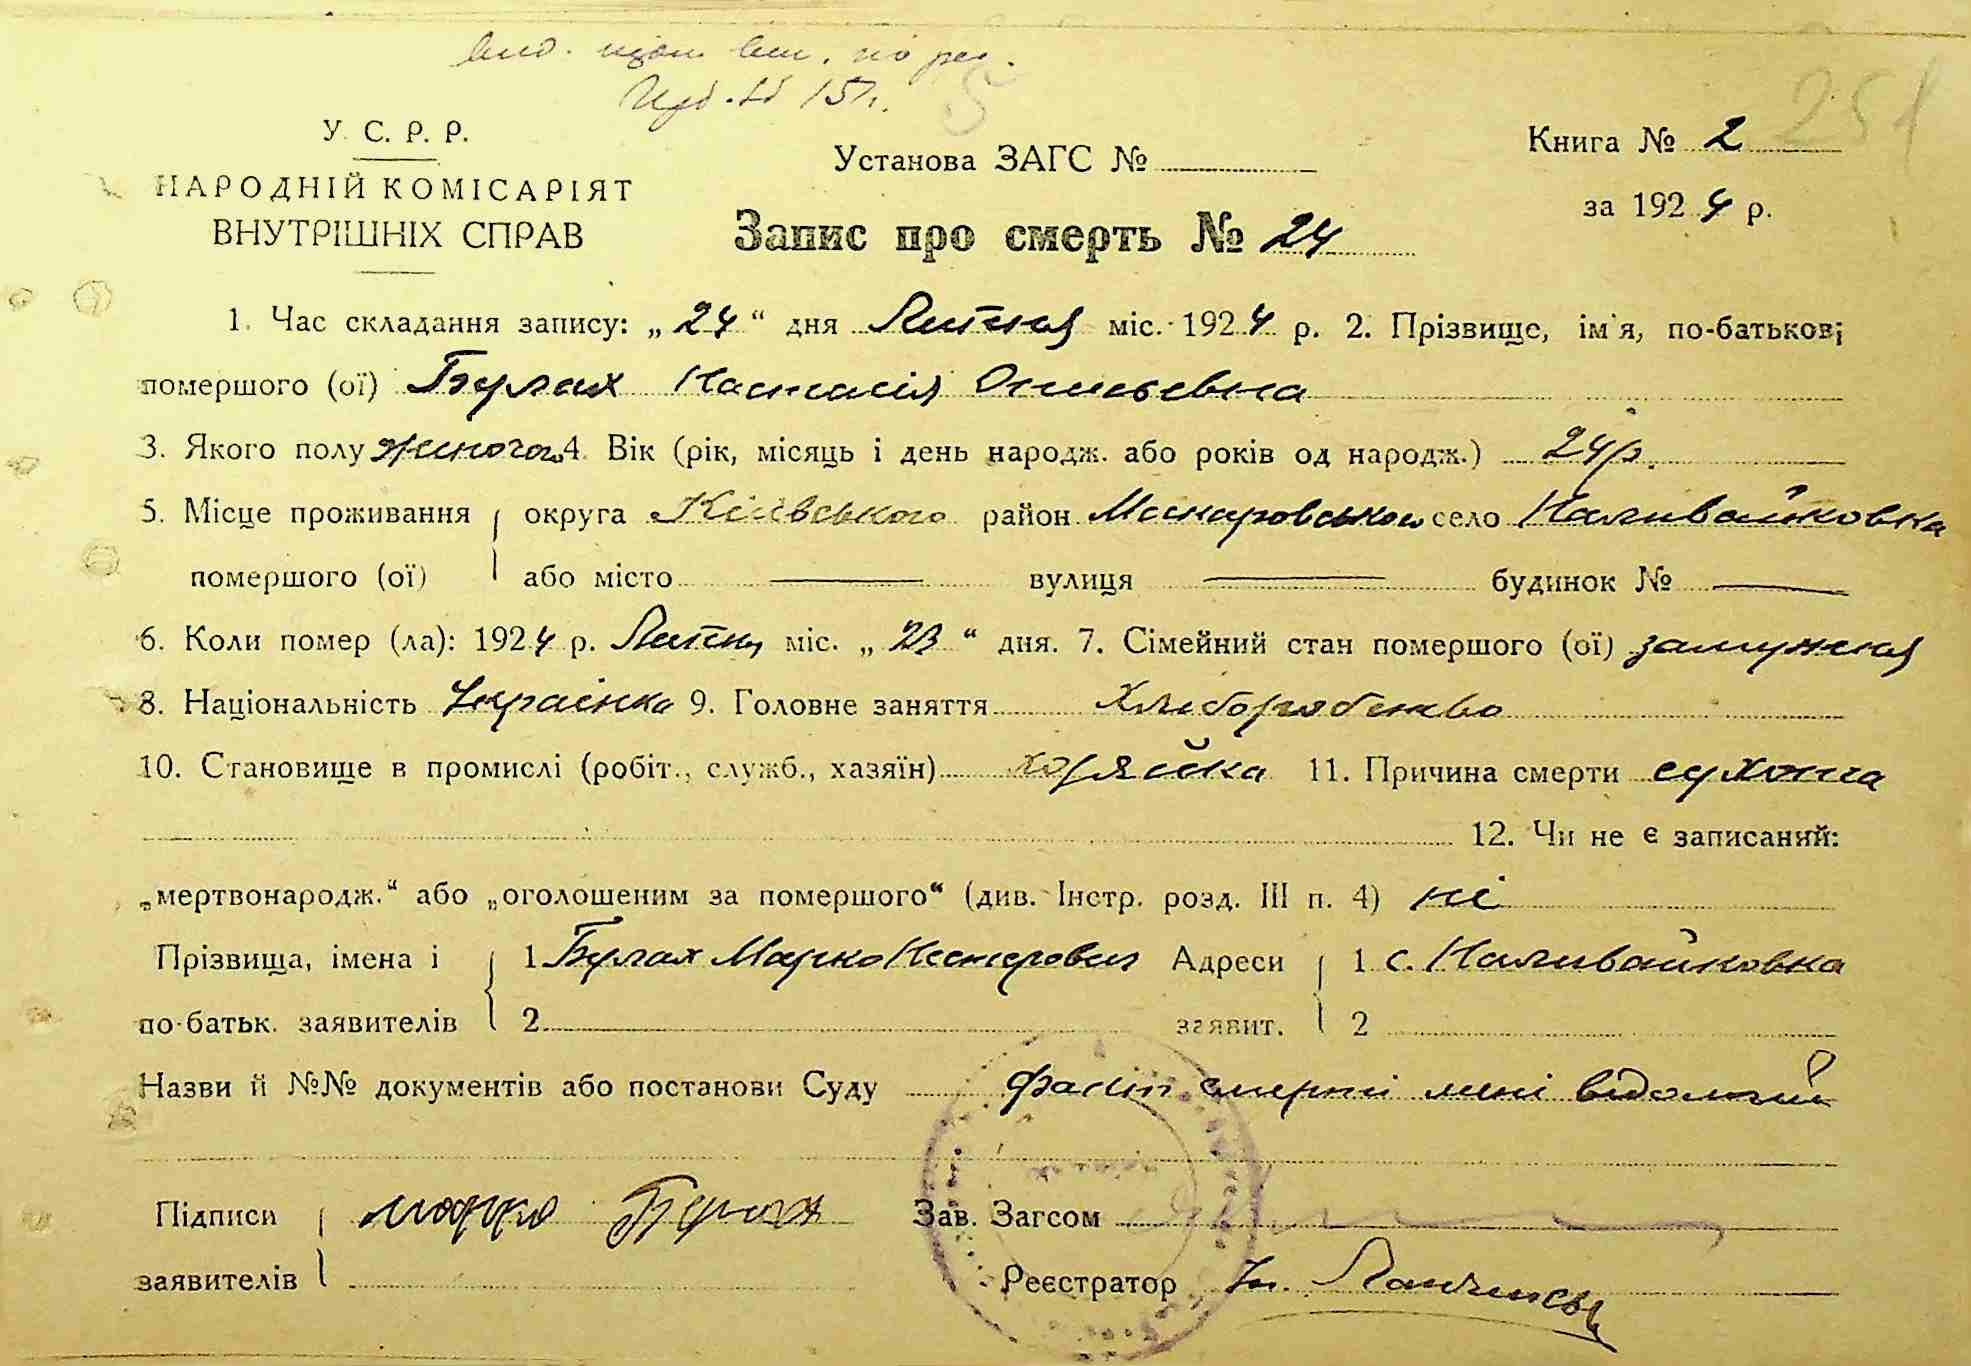 251
У. С. Р. Р.
НАРОДНІЙ КОМІСАРІЯТ
ВНУТРІШНІХ СПРАВ
Установа ЗАГС №
Книга № 2
за 1924 р.
Запис про смерть № 24
1. Час складання запису: „24“ дня Липня міс. 1924 р. 2. Прізвище, ім'я, по-батькові
помершого (ої) Булах Настасія
3. Якого полу жіночого 4. Вік (рік, місяць і день народж. або років од народж.) 24 р.
5. Місце проживання округа Київського район Макаровського село Наливайковка
помершого (ої) або місто вулиця будинок №
6. Коли помер (ла): 1924 р. Липня міс. „23“ дня. 7. Сімейний стан помершого (ої) замужня
8. Національність Украінка 9. Головне заняття Хліборобство
10. Становище в промислі (робіт., служб., хазяїн) хозяйка 11. Причина смерти сухота
12. Чи не є записаний:
„мертвонародж.“ або „оголошеним за помершого“ (див. Інстр. розд. III п. 4) ні
Прізвища, імена і 1 Булах Марко Нестерович Адреси 1 с. Наливайковка
по-батьк. заявителів 2 заявит. 2
Назви й №№ документів або постанови Суду факт смерти мені відомий
Підписи Марко Булах Зав. Загсом
заявителів Реєстратор